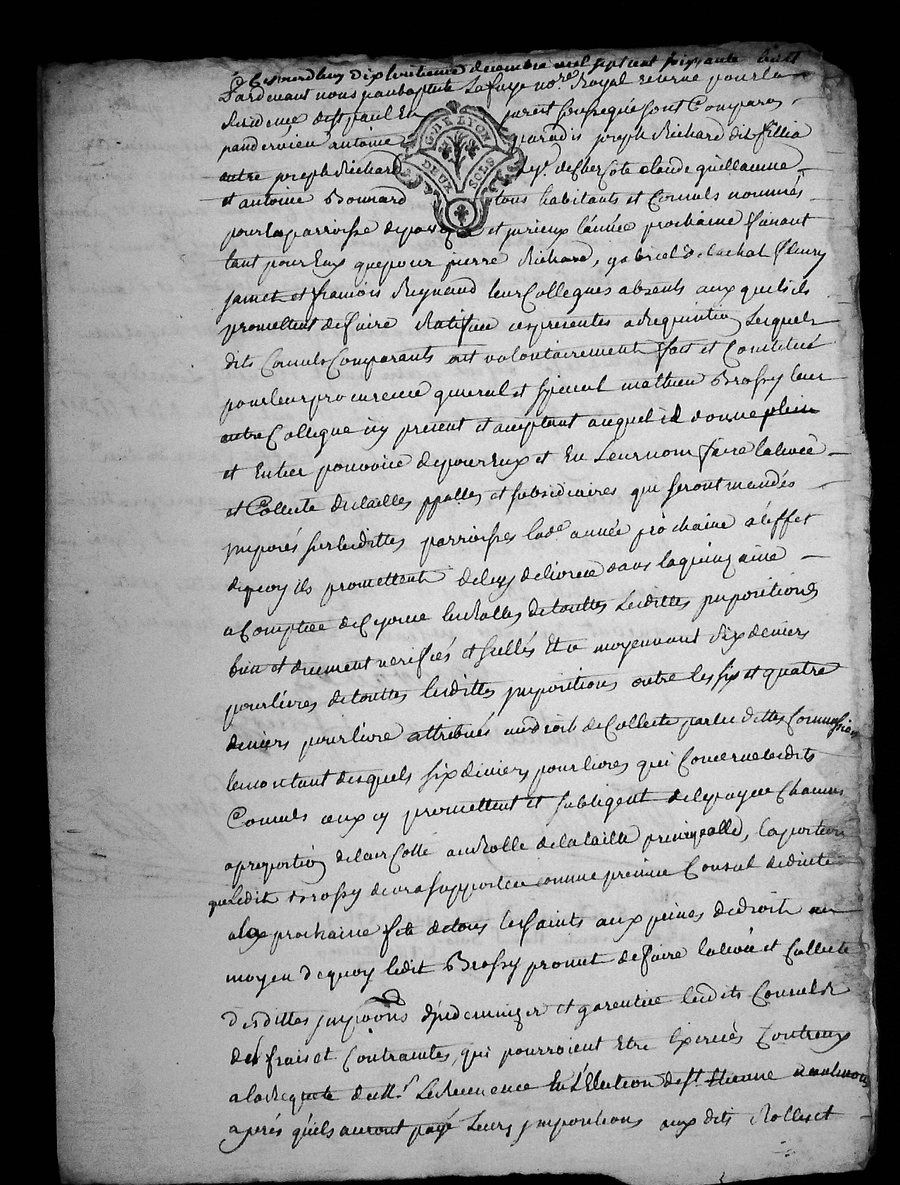 Ce jourdhuy dixhuitieme decembre mil sept cent soixante huit
Pardevant nous jean baptiste Lafaye no.re Royal reservé pour la
Residence de st paul En jarest soussigné sont Comparus
antoine paradis joseph Richard dit fillia
autre joseph Richard claude guillaume
et antoine Bonnard tous habitants et Consuls nommés
G. DE LYON
DEUX SOLS
pour la parroisse de et jurieux l'année prochaine faisant
tant pour Eux que pour pierre Richard, gabriel Delachal fleury
jamet et françois Reynaud leurs Collegues absents aux quels ils
promettent de faire Ratifier ces presentes a Requisition Lesquels
dits Consuls Comparants ont volontairement fait et Constitué
pour leur procureur general et special mathieu Brossy leur
autre Collegue icy present et acceptant auquel il donne plein
et Entier pouvoir de pour Eux et En Leur nom faire la levée
et Collecte des tailles ppalles et subsidiaires qui seront mandés
imposés sur lesdittes parroisses lad.e année prochaine a l'effet
de quoy ils promettent de luy delivrer dans la quinzaine
a Compter de Ce jour les Rolles de touttes Lesdittes impositions
bien et duement verifiés et scellés Et a moyennant six deniers
pour livres de touttes lesdittes impositions outre les six et quatre
deniers pour livre attribués au droit de Collecte par les dittes Commissions
le montant desquels six deniers pour livres qui Concerne lesdits
Consuls ceux cy promettent et s'obligent de le payer Chacuns
a proportion de leur Cotte au Rolle de la taille principalle, la portion
que Ledit Brossy devra supporter comme premier Consul deduite
a la prochaine fête de tous les saints aux peines de droit au
moyen de quoy ledit Brossy promet de faire la levée et Collecte
desdittes impôons d'indemnizer et garentir lesdits Consuls
des frais et Contraintes, qui pourroient Etre Exercés Contreux
a la Requete de M.r Le Receveur En L'Election de st Etienne
aprés qu'ils auront payé Leurs impositions aux dits Rolles et